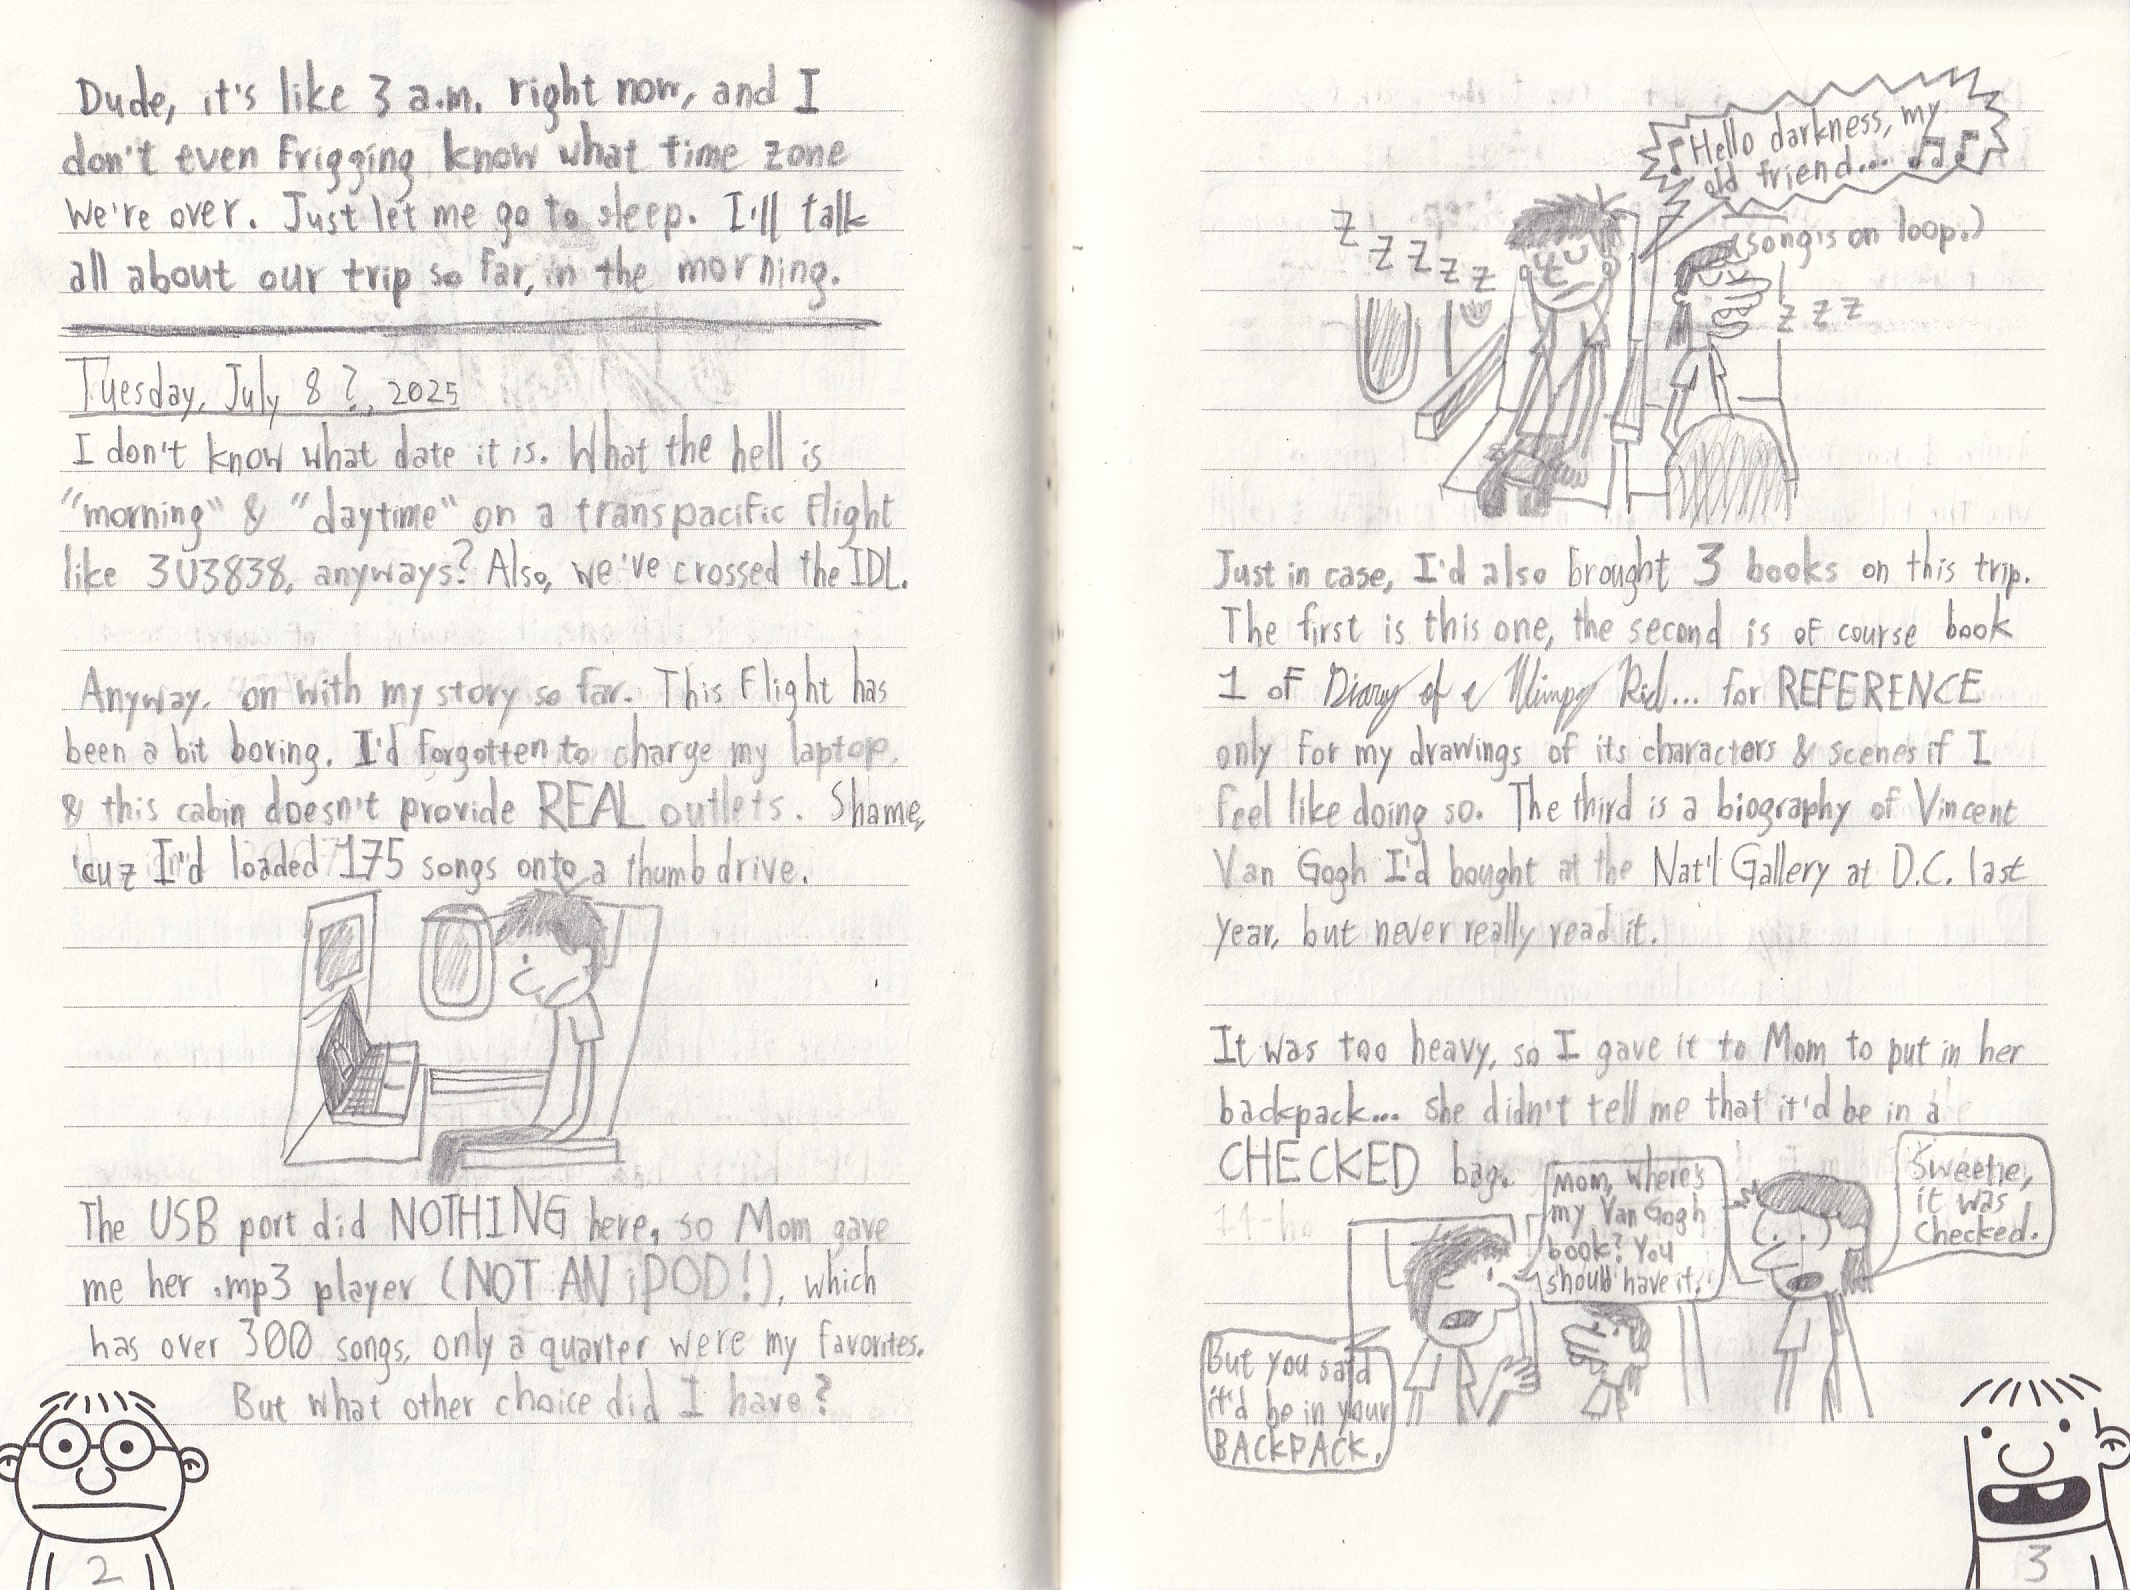 Dude, it's like 3 a.m. right now, and I
don't even frigging know what time zone
we're over. Just let me go to sleep. I'll talk
all about our trip so far, in the morning.
Tuesday, July 8?, 2025
I don't know what date it is. What the hell is
"morning" & "daytime" on a transpacific flight
like 3U3838, anyways? Also, we've crossed the IDL.
Anyway, on with my story so far. This flight has
been a bit boring. I'd forgotten to charge my laptop,
& this cabin doesn't provide REAL outlets. Shame,
'cuz I'd loaded 175 songs onto a thumb drive.
The USB port did NOTHING here, so Mom gave
me her .mp3 player (NOT AN iPOD!), which
has over 300 songs, only a quarter were my favorites.
But what other choice did I have?
2
♪Hello darkness, my
old friend... ♫♪
(song's on loop.)
z z z z z
z z z
Just in case, I'd also brought 3 books on this trip.
The first is this one, the second is of course book
1 of Diary of a Wimpy Kid... for REFERENCE
only for my drawings of its characters & scenes if I
feel like doing so. The third is a biography of Vincent
Van Gogh I'd bought at the Nat'l Gallery at D.C. last
year, but never really read it.
It was too heavy, so I gave it to Mom to put in her
backpack... she didn't tell me that it'd be in a
CHECKED bag.
Mom, where's
my Van Gogh
book? You
should have it.
Sweetie,
it was
checked.
But you said
it'd be in your
BACKPACK.
3